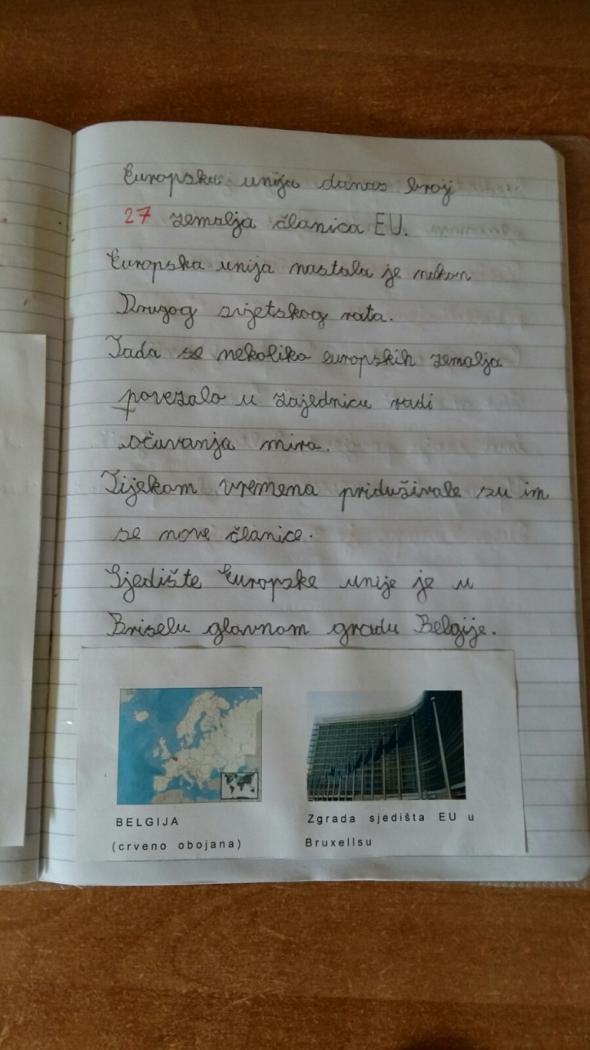 Europska unija danas broji
27 zemalja članica EU.
Europska unija nastala je nakon
Drugog svjetskog rata.
Tada se nekoliko europskih zemalja
povezalo u zajednicu radi
očuvanja mira.
Tijekom vremena pridruživale su im
se nove članice.
Sjedište Europske unije je u
Briselu glavnom gradu Belgije.
BELGIJA
(crveno obojana)
Zgrada sjedišta EU u
Bruxellsu